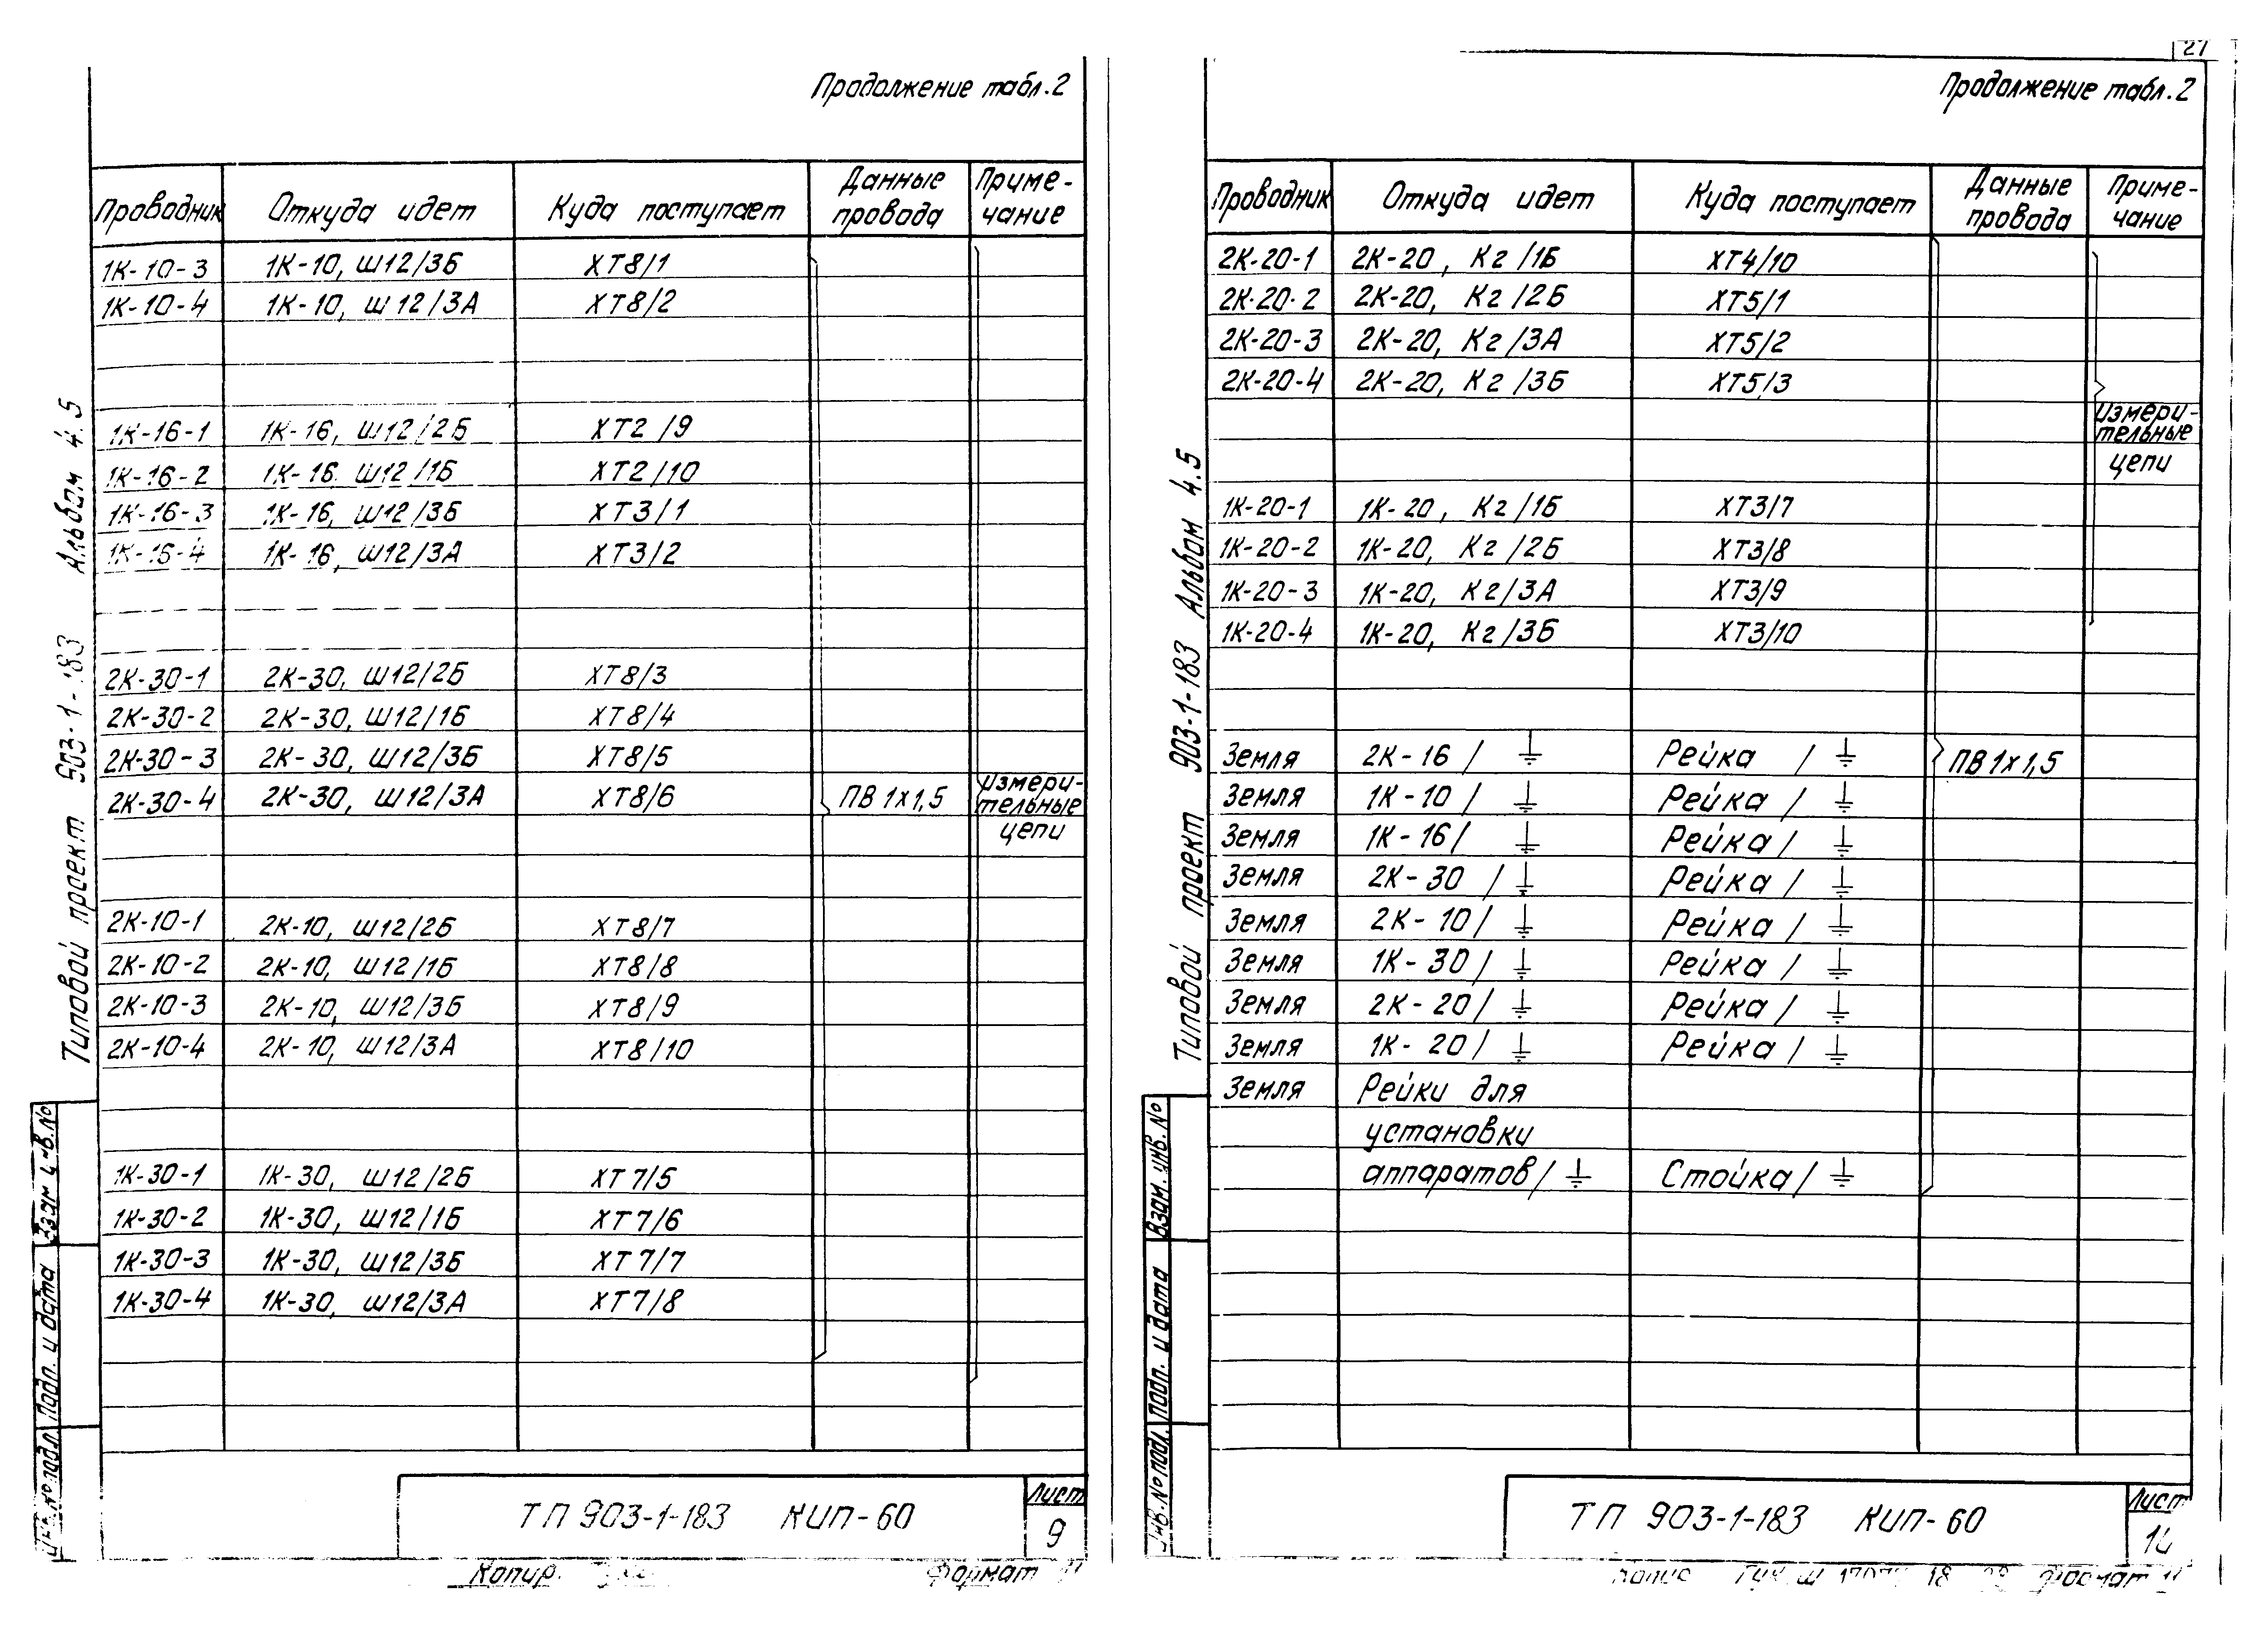 Продолжение табл.2
Проводник Откуда идет Куда поступает Данные провода Приме-чание
1К-10-3 1К-10, Ш12/3Б ХТ8/1
1К-10-4 1К-10, Ш12/3А ХТ8/2
1К-16-1 1К-16, Ш12/2Б ХТ2/9
1К-16-2 1К-16. Ш12/1Б ХТ2/10
1К-16-3 1К-16, Ш12/3Б ХТ3/1
1К-16-4 1К-16, Ш12/3А ХТ3/2
2К-30-1 2К-30, Ш12/2Б ХТ8/3
2К-30-2 2К-30, Ш12/1Б ХТ8/4
2К-30-3 2К-30, Ш12/3Б ХТ8/5
2К-30-4 2К-30, Ш12/3А ХТ8/6 ПВ 1х1,5 измери-
тельные
цепи
2К-10-1 2К-10, Ш12/2Б ХТ8/7
2К-10-2 2К-10, Ш12/1Б ХТ8/8
2К-10-3 2К-10, Ш12/3Б ХТ8/9
2К-10-4 2К-10, Ш12/3А ХТ8/10
1К-30-1 1К-30, Ш12/2Б ХТ7/5
1К-30-2 1К-30, Ш12/1Б ХТ7/6
1К-30-3 1К-30, Ш12/3Б ХТ7/7
1К-30-4 1К-30, Ш12/3А ХТ7/8
Типовой проект 903-1-183 Альбом 4.5
Взам инв.№
Подп. и дата
Инв.№подл.
ТП 903-1-183 КИП-60
Лист
9
Копир.
Формат
27
Продолжение табл.2
Проводник Откуда идет Куда поступает Данные провода Приме-чание
2К-20-1 2К-20, Кг/1Б ХТ4/10
2К-20-2 2К-20, Кг/2Б ХТ5/1
2К-20-3 2К-20, Кг/3А ХТ5/2
2К-20-4 2К-20, Кг/3Б ХТ5/3
измери-
тельные
цепи
1К-20-1 1К-20, Кг/1Б ХТ3/7
1К-20-2 1К-20, Кг/2Б ХТ3/8
1К-20-3 1К-20, Кг/3А ХТ3/9
1К-20-4 1К-20, Кг/3Б ХТ3/10
Земля 2К-16/⏚ Рейка/⏚ ПВ1х1,5
Земля 1К-10/⏚ Рейка/⏚
Земля 1К-16/⏚ Рейка/⏚
Земля 2К-30/⏚ Рейка/⏚
Земля 2К-10/⏚ Рейка/⏚
Земля 1К-30/⏚ Рейка/⏚
Земля 2К-20/⏚ Рейка/⏚
Земля 1К-20/⏚ Рейка/⏚
Земля Рейки для
установки
аппаратов/⏚ Стойка/⏚
Типовой проект 903-1-183 Альбом 4.5
Взам.инв.№
Подп. и дата
Инв.№подл.
ТП 903-1-183 КИП-60
Лист
Формат